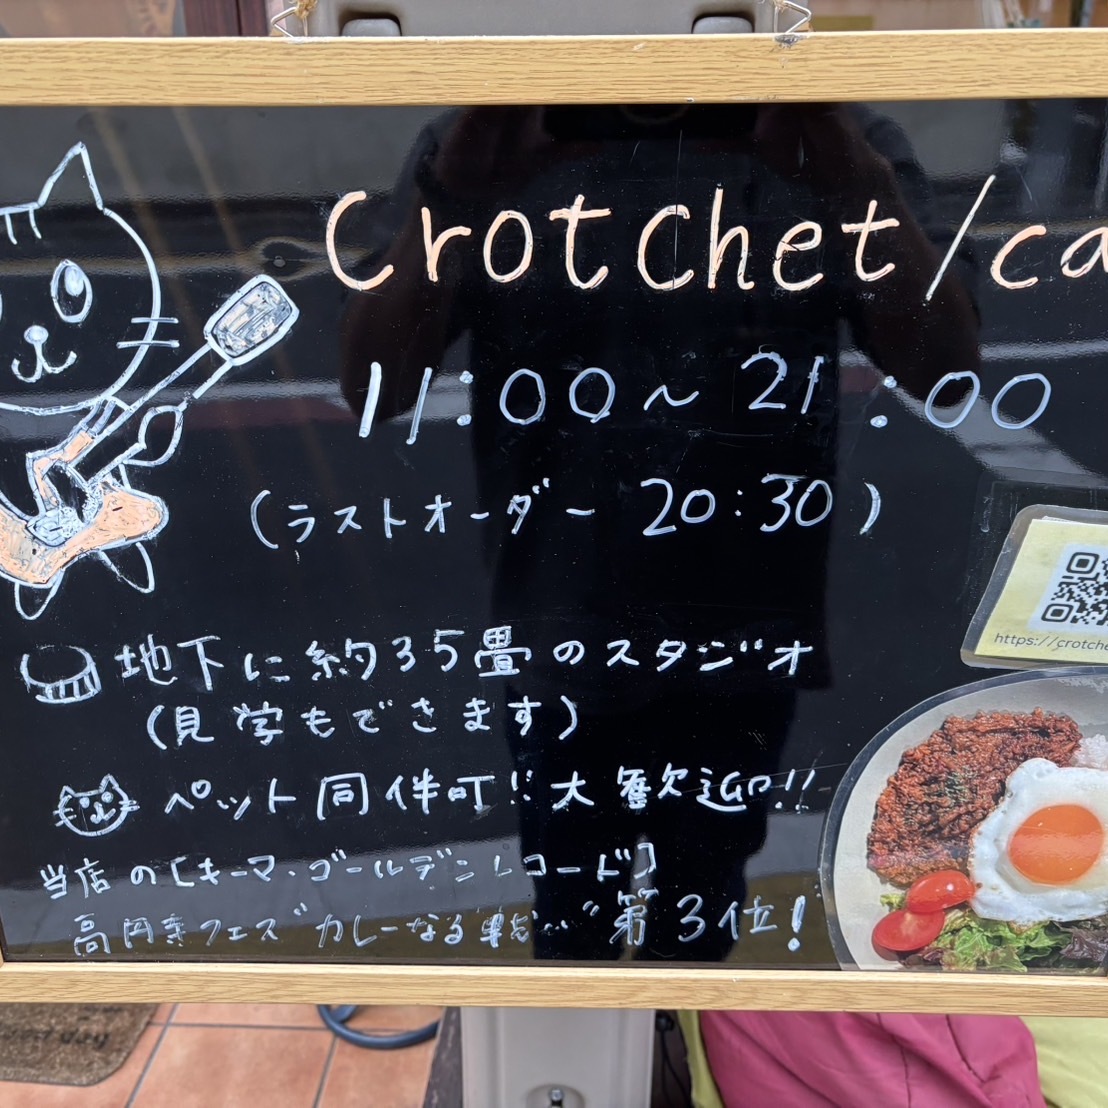 Crotchet/ca
11:00～21:00
(ラストオーダー 20:30)
https://crotche
地下に約35畳のスタジオ
(見学もできます)
ペット同伴可!! 大歓迎!!
当店の[キーマ・ゴールデンレコード]
高円寺フェス"カレーなる戦い"第3位!